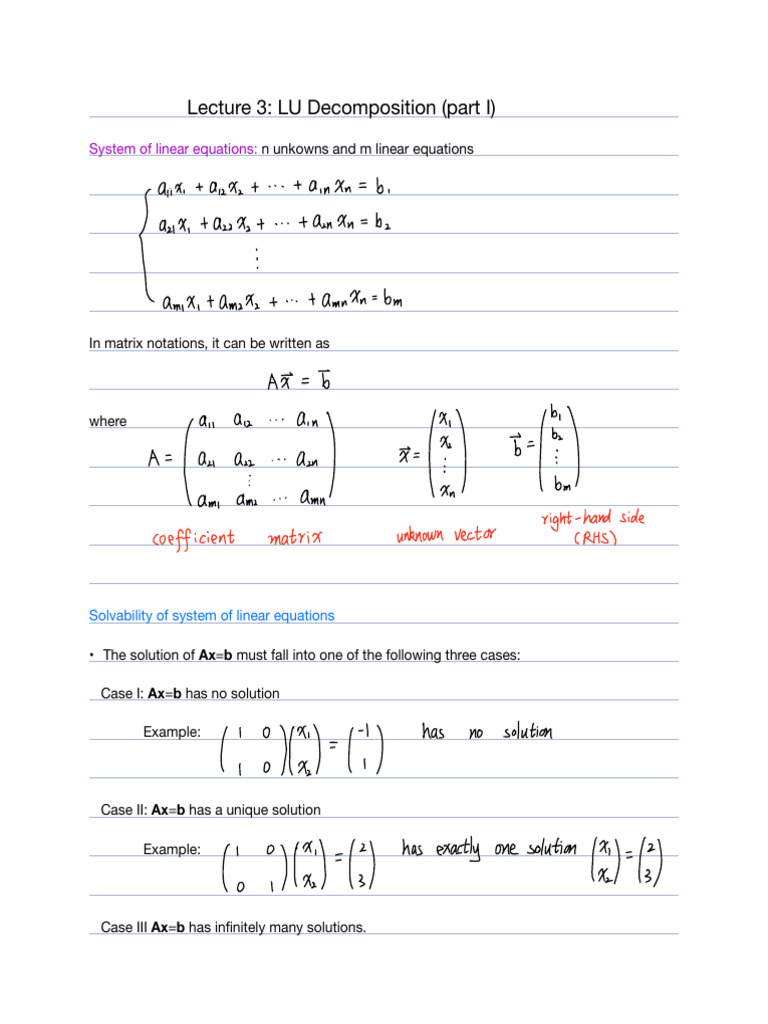 Lecture 3: LU Decomposition (part I)
System of linear equations: n unkowns and m linear equations
a₁₁x₁ + a₁₂x₂ + ⋯ + a₁ₙxₙ = b₁
a₂₁x₁ + a₂₂x₂ + ⋯ + a₂ₙxₙ = b₂
⋮
aₘ₁x₁ + aₘ₂x₂ + ⋯ + aₘₙxₙ = bₘ
In matrix notations, it can be written as
Ax⃗ = b⃗
where
A = ( a₁₁ a₁₂ ⋯ a₁ₙ
a₂₁ a₂₂ ⋯ a₂ₙ
⋮
aₘ₁ aₘ₂ ⋯ aₘₙ )
x⃗ = ( x₁
x₂
⋮
xₙ )
b⃗ = ( b₁
b₂
⋮
bₘ )
coefficient matrix
unknown vector
right-hand side
(RHS)
Solvability of system of linear equations
• The solution of Ax=b must fall into one of the following three cases:
Case I: Ax=b has no solution
Example: ( 1 0 ) ( x₁ ) = ( -1 ) has no solution
( 1 0 ) ( x₂ ) ( 1 )
Case II: Ax=b has a unique solution
Example: ( 1 0 ) ( x₁ ) = ( 2 ) has exactly one solution ( x₁ ) = ( 2 )
( 0 1 ) ( x₂ ) ( 3 ) ( x₂ ) ( 3 )
Case III Ax=b has infinitely many solutions.